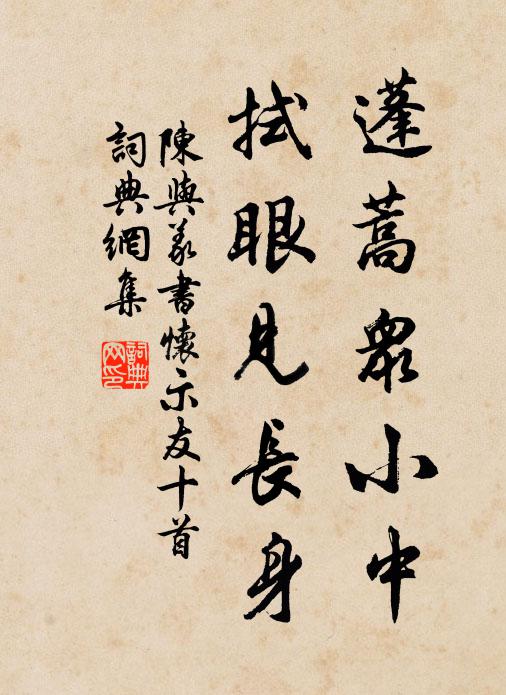 蓬蒿眾小中
拭眼見長身
陳與義書懷示友十首
詞典網集
詞典网印